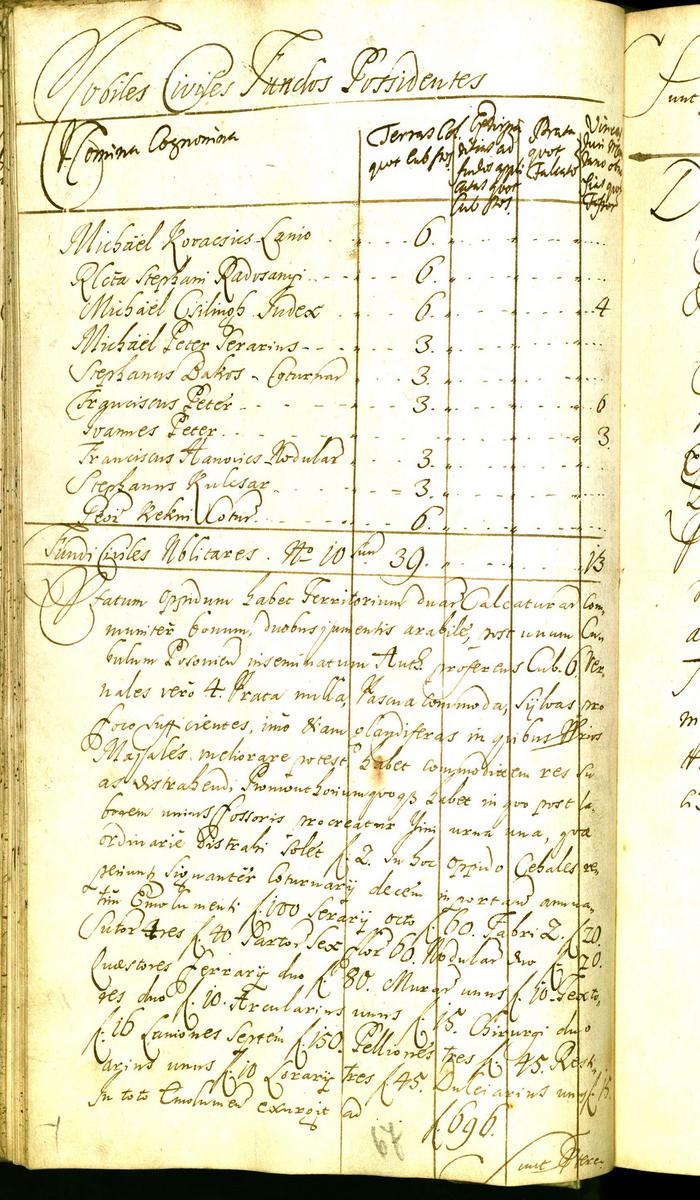 Nobiles Civiles Fundos Possidentes
Nomina Cognomina
Terras Col. quot Cub. Pos.
ad fundos quot Cub. Pos.
Prata quot Falcatorum
Vineas quot Fossor
Michaël Kovacsics Lanio 6.
Rlcta Stephani Radosanyi 6.
Michaël Csilingh Judex 6. 4
Michaël Peter Serarius 3.
Stephanus Bakos Coturnar 3.
Franciscus Peter 3. 6
Joannes Peter 3
Franciscus Hanovics Nodular 3.
Stephanus Kulcsar 3.
Geor Kekni Cotur. 6.
Fundi Civiles Nblitares. No 10 sun 39. 13
Statum Oppidum habet Territorium duar Calcaturar Com,
muniter bonum, duobus jumentis arabile, post unum Cu,
bulum Posonien inseminatum Auth proferens Cub. 6. Ver,
nales vero 4. Prata nulla, Pascua commoda, Sylvas pro
foco sufficientes, imo etiam glandiferas in quibus
Majales meliorare potest habet commoditatem res su
as distrahendi Promonthorium quoqs habet in quo post la,
borem unius Fossoris procreatur Vini urna una, quae
ordinarie distrahi solet f. 2. In hoc oppido Cehales re,
periunt signanter Coturnarij decem important annua,
tim Emolumenti f. 100 Serarij octo f. 60. Fabri 2. f. 20.
Sutor tres f. 40 Sartor Sex flor 60. Nodular duo f. 20.
Quaestores Ferrarij duo f. 80. Murar unus f. 10. Texto,
res duo f. 10. Arcularius unus f. 15. Chirurgi duo
f. 16 Laniones Septem f. 150. Pelliones tres f. 45. Rest,
arius unus f. 10 Lorarij tres f. 45. Dulciarius unus f. 15.
In toto Emolumen exurgit ad f. 696.
64
Sunt Praete,